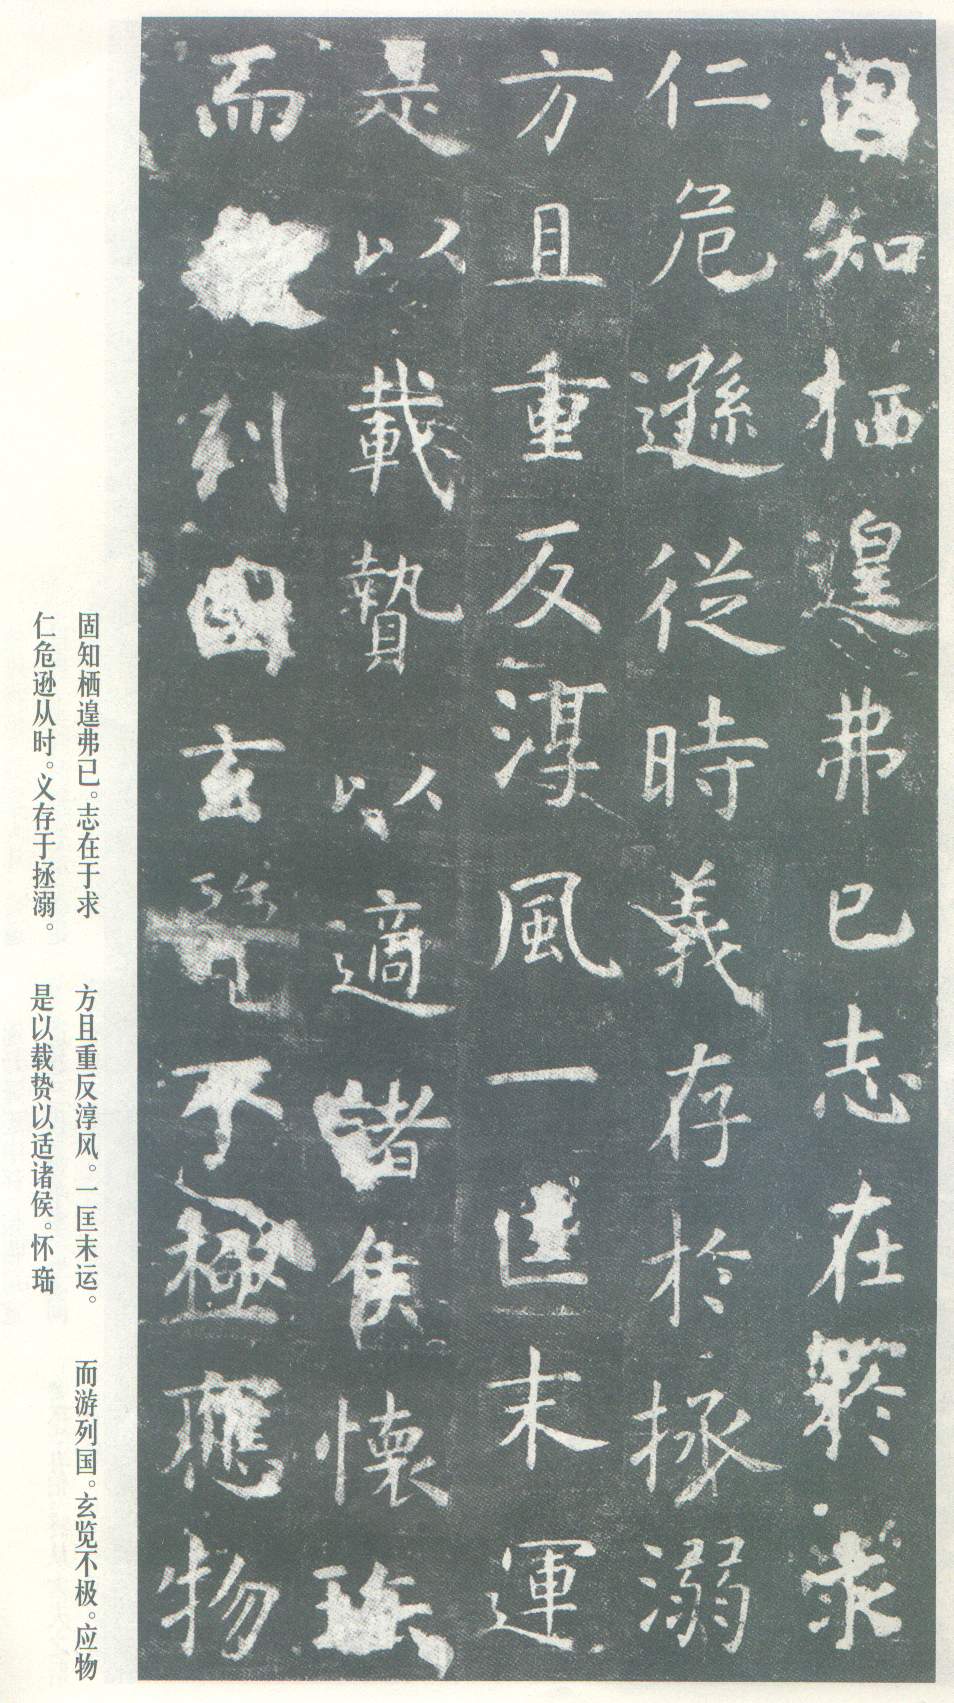 固知栖遑弗已志在於求
仁危遜從時義存於拯溺
方且重反淳風一匡末運
是以載贄以適諸侯懷
而列國玄覽不極應物
固知栖遑弗已。志在于求
仁危逊从时。义存于拯溺。
方且重反淳风。一匡末运。
是以载贽以适诸侯。怀珤
而游列国。玄览不极。应物